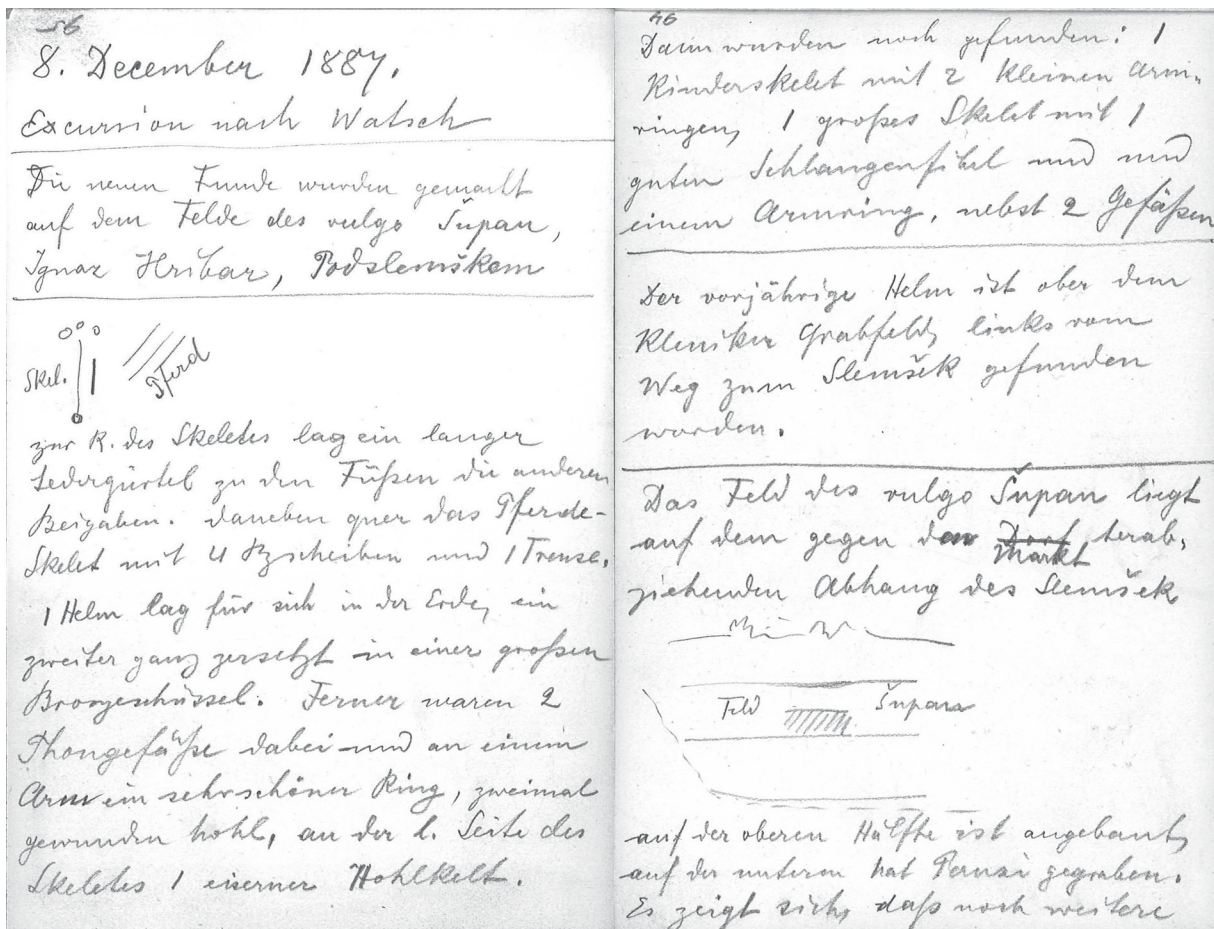 56
8. December 1887.
Excursion nach Watsch
Die neuen Funde wurden gemacht
auf dem Felde des vulgo Šupan,
Ignaz Hribar, Podslemškem
Skel.
Pferd
zur R. des Skeletes lag ein langer
Ledergürtel zu den Füßen die anderen
Beigaben. daneben quer das Pferde-
Skelet mit 4 Bzscheiben und 1 Trense.
1 Helm lag für sich in der Erde, ein
zweiter ganz zersetzt in einer großen
Bronzeschüssel. Ferner waren 2
Thongefäße dabei und an einem
Arm ein sehr schöner Ring, zweimal
gewunden hohl, an der l. Seite des
Skeletes 1 eiserner Hohlkelt.
Dann wurden noch gefunden: 1
Kinderskelet mit 2 kleinen Arm-
ringen, 1 großes Skelet mit 1
guten Schlangenfibel und und
einem Armring, nebst 2 Gefäßen
Der vorjährige Helm ist ober dem
Kleniker Grabfeld, links vom
Weg zum Slemšek gefunden
worden.
Das Feld des vulgo Šupan liegt
auf dem gegen den Dorf herab-
Markt
ziehenden Abhang des Slemšek
Feld Šupan
auf der oberen Hälfte ist angebaut,
auf der unteren hat Peruzi gegraben.
Es zeigt sich, daß noch weitere